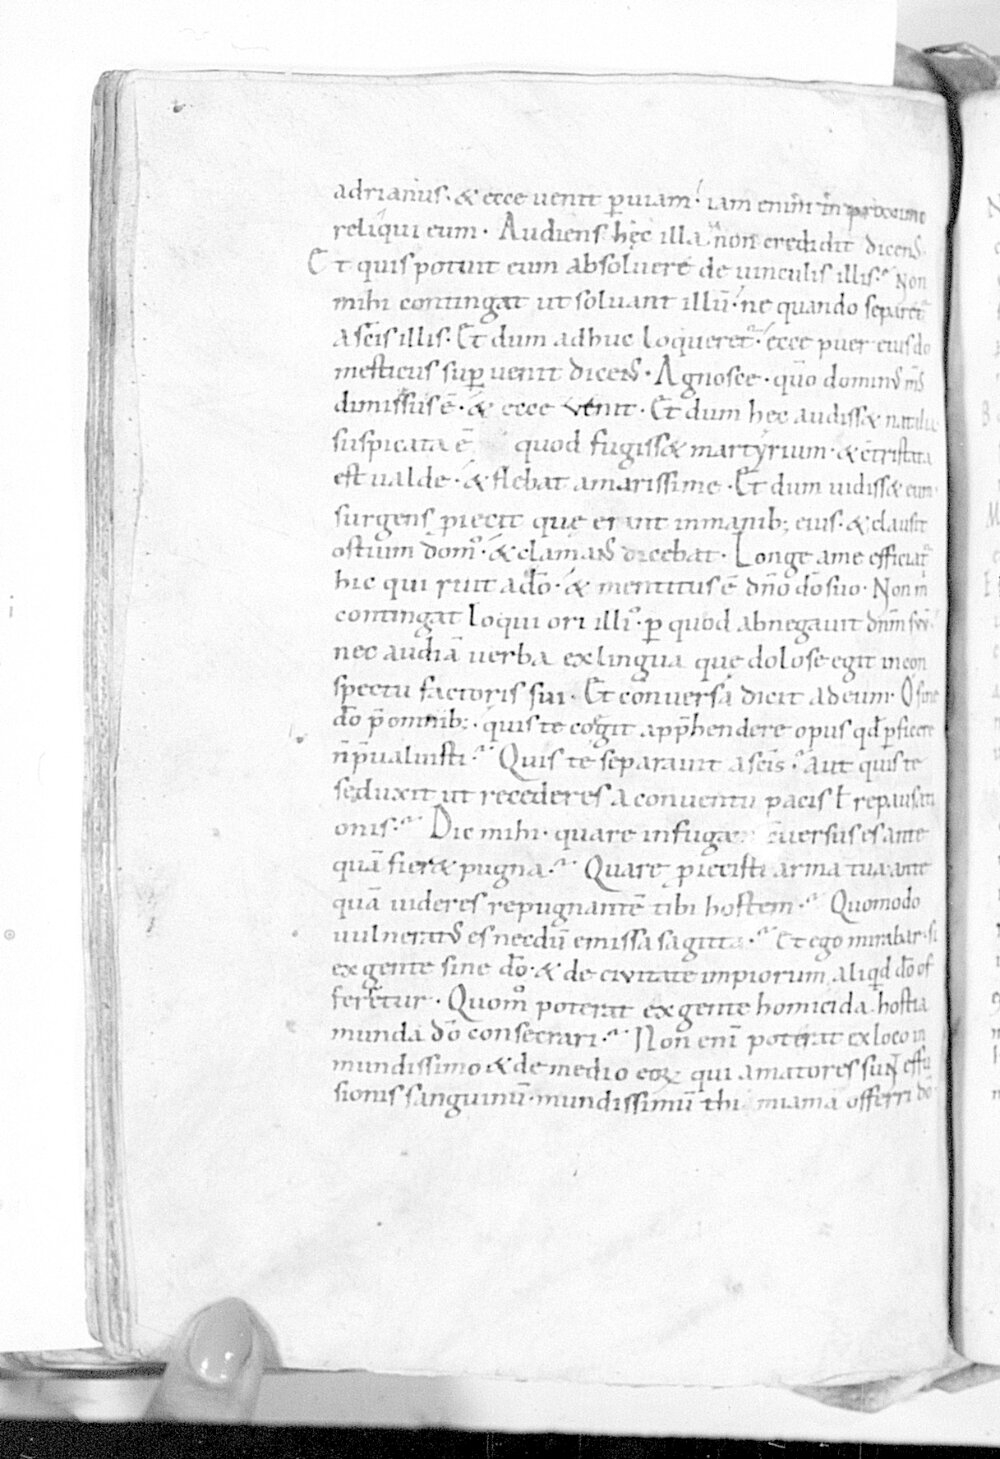 adrianus· & ecce uenit ꝑ uiam· iam enim in proximo
reliqui eum· Audiens hęc illa non credidit dicens·
Et quis potuit eum absoluere de uinculis illis· Non
mihi contingat ut soluant illū· ne quando separet᷑
a scīs illis· Et dum adhuc loqueret᷑· ecce puer eius do
mesticus suꝑuenit dicens· Agnosce· quō dominus m̄s
dimissus ē· & ecce uenit· Et dum hec audiss& natalia
suspicata ē quod fugiss& martyrium· & c̄tristata
est ualde· & flebat amarissime· Et dum uidiss& eum
surgens ꝓiecit quę erant in manib; eius· & clausit
ostium domꝰ· & clamans dicebat· Longe a me efficiat᷑
hic qui ruit a dō· & mentitus ē dn̄o dō suo· Non m̄
contingat loqui ori illiꝰ· ꝑ quod abnegauit dn̄m suū·
nec audiā uerba ex lingua que dolose egit in con
spectu factoris sui· Et conuersa dicit ad eum· O sine
dō p̄ omnib;· quis te cogit app̄hendere opus qđ ꝑficere
n̄ p̄ualuisti· Quis te separauit a scīs· aut quis te
seduxit ut recederes a conuentu pacis ł repausati
onis· Dic mihi· quare in fugā uersus es ante
quā fier& pugna· Quare ꝓiecisti arma tua ante
quā uideres repugnantē tibi hostem· Quomodo
uulneratus es necdū emissa sagitta· Et ego mirabar· si
ex gente sine dō· & de ciuitate impiorum aliqđ dō of
feretur· Quomº poterat ex gente homicida hostia
munda dō consecrari· Non enī poterat ex loco in
mundissimo & de medio eoꝝ qui amatores sunt effu
sionis sanguinū· mundissimū thimiama offerri dō